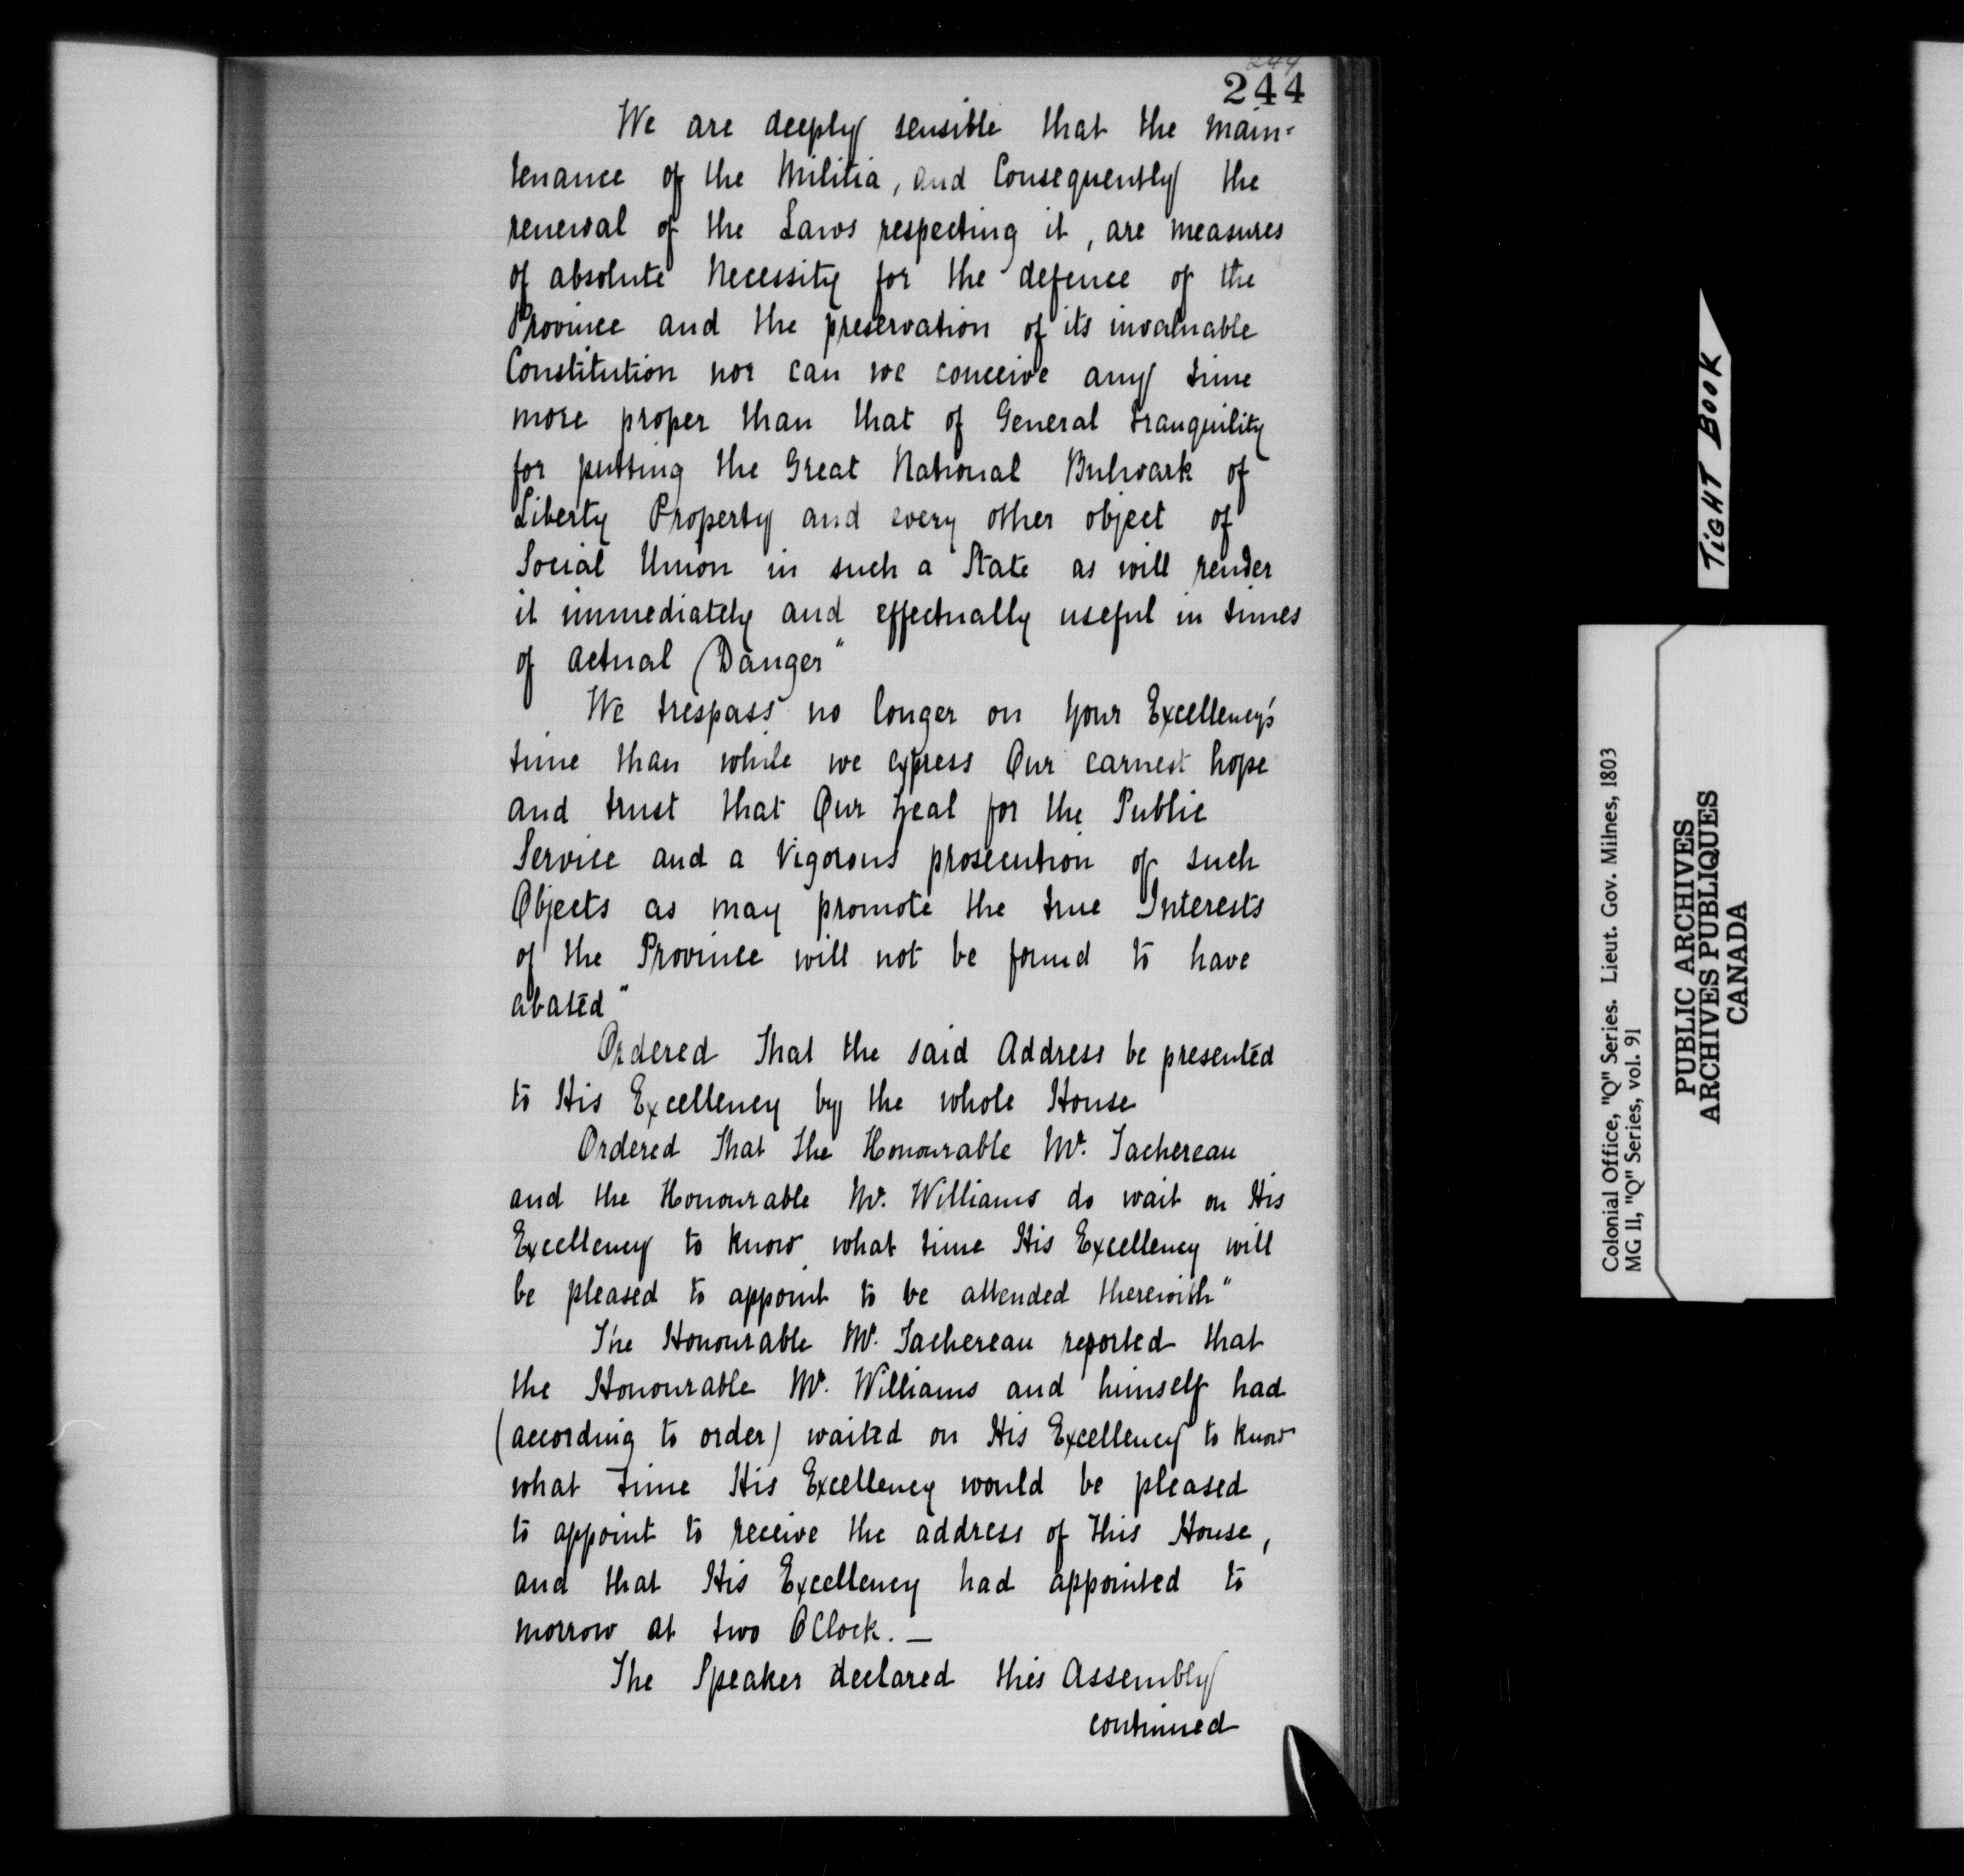 244
244
We are deeply sensible that the main-
tenance of the Militia, and Consequently the
renewal of the Laws respecting it, are measures
of absolute Necessity for the defence of the
Province and the preservation of its invaluable
Constitution nor can we conceive any time
more proper than that of General tranquility
for putting the Great National Bulwark of
Liberty Property and every other object of
Social Union in such a State as will render
it immediately and effectually useful in times
of actual Danger"
We trespass no longer on Your Excellency's
time than while we express Our earnest hope
and trust that Our Zeal for the Public
Service and a Vigorous prosecution of such
Objects as may promote the true Interests
of the Province will not be found to have
abated"
Ordered That the said Address be presented
to His Excellency by the whole House
Ordered That the Honourable Mr. Tachereau
and the Honourable Mr. Williams do wait on His
Excellency to know what time His Excellency will
be pleased to appoint to be attended therewith"
The Honourable Mr. Tachereau reported that
the Honourable Mr. Williams and himself had
(according to order) waited on His Excellency to know
what time His Excellency would be pleased
to appoint to receive the address of this House,
and that His Excellency had appointed to
morrow at two OClock. —
The Speaker declared this Assembly
continued
TIGHT BOOK
Colonial Office, "Q" Series. Lieut. Gov. Milnes, 1803
MG 11, "Q" Series, vol. 91
PUBLIC ARCHIVES
ARCHIVES PUBLIQUES
CANADA